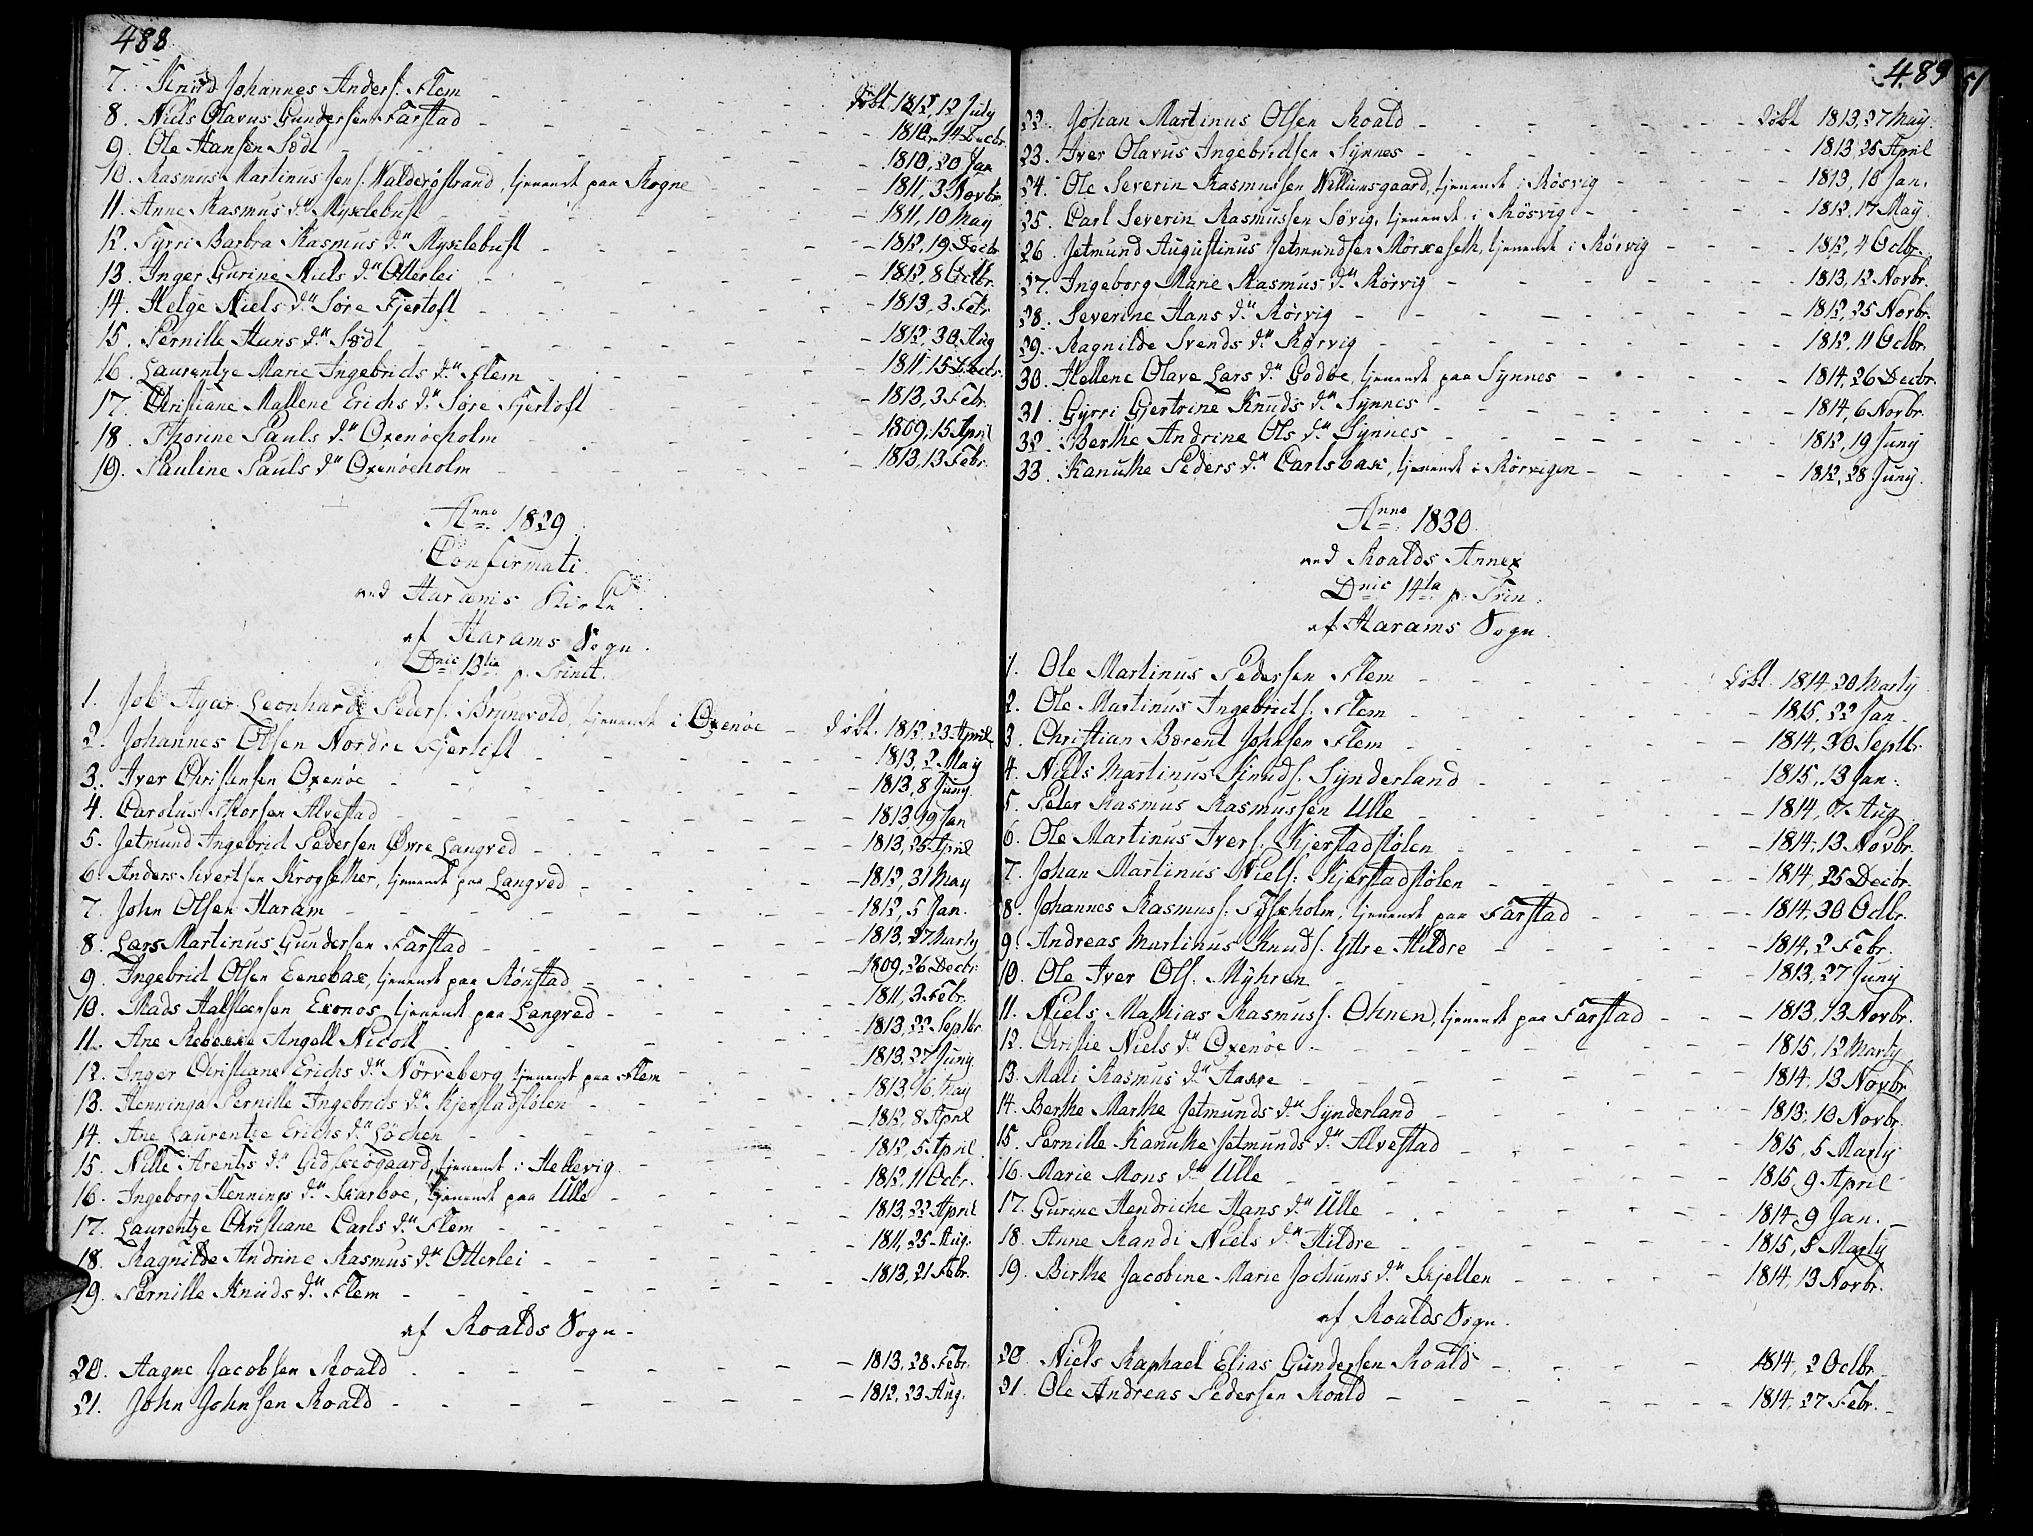 488
7. Knud Johannes Anders. Flem - - - - - døbt 1812, 12 July
8. Niels Olavus Gundersen Farstad - - - - - 1812, 14 Decbr.
9. Ole Hansen Sødt - - - - - 1810, 20 Jan
10. Rasmus Martinus Jens. Walderøstrand, tjenende paa Rogne - - - 1811, 3 Novbr.
11. Anne Rasmus d.r Myxlebust - - - - - 1811, 10 May
12. Syrri Barbra Rasmus d.r Myxlebust - - - - - 1812, 19 Decbr.
13. Inger Gurine Niels d.r Otterlei - - - - - 1812, 8 Octbr.
14. Helge Niels d.r Søre Fjertoft - - - - - 1813, 3 Febr.
15. Pernille Hans d.r Sødt - - - - - 1812, 30 Aug
16. Laurentze Marie Ingebrict d.r Flem - - - - - 1811, 15 Decbr.
17. Christiane Mallene Erichs d.r Søre Fjertoft - - - - - 1813, 3 Febr.
18. Thorine Pauls d.r Oxenøeholm - - - - - 1809, 15 April
19. Pauline Pauls d.r Oxenøeholm - - - - - 1813, 13 Febr.
Anno 1829
Confirmati
ved Harams Kirke
af Harams Sogn.
Dnic 13tia p. Trinit.
1. Job Agar Leonhard Peders. Brynsvold, tjenende i Oxenøe - døbt. 1812, 23 April
2. Johannes Olsen Nordre Fjertoft - - - - - 1813, 2 May
3. Iver Christensen Oxenøe - - - - - 1813, 8 Juny
4. Carolus Thorsen Alvestad - - - - - 1813, 19 Jan
5. Jetmund Ingebrict Pedersen Øvre Langved - - - - - 1813, 25 April
6. Anders Sivertsen Krogsether, tjenende paa Langved - - - - - 1812, 31 May
7. John Olsen Haram - - - - - 1812, 5 Jan.
8. Lars Martinus Gundersen Farstad - - - - - 1813, 27 Marty
9. Ingebrict Olsen Eenebax, tjenende paa Rønstad - - - - - 1809, 26 Decbr.
10. Mads Halsteensen Exonos, tjenende paa Langved - - - - - 1811, 3 Febr.
11. Ane Rebecca Angell Nicoll - - - - - 1813, 22 Septbr.
12. Inger Christiane Erichs d.r Nörveberg tjenende paa Flem - - - - - 1813, 27 Juny
13. Henninga Pernille Ingebricts d.r Kjerstadstølen - - - - - 1813, 16 May
14. Ane Laurentze Erichs d.r Løchen - - - - - 1812, 8 April
15. Nille Arentzs d.r Gidskeøgaard, tjenende i Hellevig - - - - - 1812, 5 April
16. Ingeborg Hennings d.r Skarboe, tjenende paa Ulle - - - - - 1812, 11 Octr.
17. Laurentze Christiane Carls d.r Flem - - - - - 1813, 22 April
18. Ragnilde Andrine Rasmus d.r Otterlei - - - - - 1811, 25 Aug.
19. Pernille Knuds d.r Flem - - - - - 1813, 21 Febr.
af Roalds Sogn -
20. Aagne Jacobsen Roald - - - - - 1813, 28 Febr.
21. John Johnsen Roald - - - - - 1812, 23 Aug.
489
22. Johan Martinus Olsen Roald - - - - - døbt 1813, 27 May
23. Iver Olavus Ingebrictsen Synnes - - - - - 1813, 25 April
24. Ole Severin Rasmussen Willumsgaard, tjenende i Rösvig - - - - - 1813, 10 Jan.
25. Carl Severin Rasmussen Søvig, tjenende i Rösvig - - - - - 1812, 17 May
26. Jetmund Augustinus Jetmundsen Morxeseth, tjenende i Rörvig - - - - - 1812, 4 Octbr.
27. Ingeborg Marie Rasmus d.r Rörvig - - - - - 1813, 12 Novbr.
28. Severine Hans d.r Rörvig - - - - - 1812, 25 Novbr.
29. Ragnilde Svends d.r Rörvig - - - - - 1812, 11 Octbr.
30. Hellene Olave Lars d.r Godøe, tjenende paa Synnes - - - - - 1814, 26 Decbr.
31. Gyrri Gjertrine Knuds d.r Synnes - - - - - 1814, 6 Novbr.
32. Berthe Andrine Ols d.r Synnes - - - - - 1812, 19 Juny
33. Kanuthe Peders d.r Carlsbax, tjenende i Rörvigen - - - - - 1812, 28 Juny.
Anno 1830
ved Roalds Annex
Dnic 14ta p. Trin.
af Harams Sogn.
1. Ole Martinus Pedersen Flem - - - - - døbt. 1814, 20 Marty
2. Ole Martinus Ingebricts. Flem - - - - - 1815, 22 Jan -
3. Christian Bærent Johnsen Flem - - - - - 1814, 30 Septbr.
4. Niels Martinus Knuds. Synderland - - - - - 1815, 13 Jan.
5. Peter Rasmus Rasmussen Ulle - - - - - 1814, 7 Aug
6. Ole Martinus Ivers. Kjerstadstølen - - - - - 1814, 13 Novbr.
7. Johan Martinus Niels. Kjerstadstølen - - - - - 1814, 25 Decbr.
8. Johannes Rasmuss. Fyskholm, tjenende paa Farstad - - - - - 1814, 30 Octbr.
9. Andreas Martinus Knuds. Yttre Hildre - - - - - 1814, 2 Febr.
10. Ole Iver Ols. Myhren - - - - - 1813, 27 Juny
11. Niels Mathias Rasmuss. Ohnen, tjenende paa Farstad - - - 1813, 13 Novbr.
12. Christie Niels d.r Oxenøe - - - - - 1815, 12 Marty
13. Mali Rasmus d.r Aakre - - - - - 1814, 13 Novbr
14. Berthe Marthe Jetmunds d.r Synderland - - - - - 1813, 10 Novbr.
15. Pernille Kanuthe Jetmunds d.r Alvestad - - - - - 1815, 5 Marty
16. Marie Mons d.r Ulle - - - - - 1815, 9 April
17. Gurine Hendriche Hans d.r Ulle - - - - - 1814, 9 Jan.
18. Anne Randi Niels d.r Hildre - - - - - 1815, 5 Marty
19. Birthe Jacobine Marie Jochums d.r Skjelten - - - - - 1814, 13 Novbr.
af Roalds Sogn.
20. Niels Raphael Elias Gundersen Roald - - - - - 1814, 2 Octbr.
21. Ole Andreas Pedersen Roald - - - - - 1814, 27 Febr.